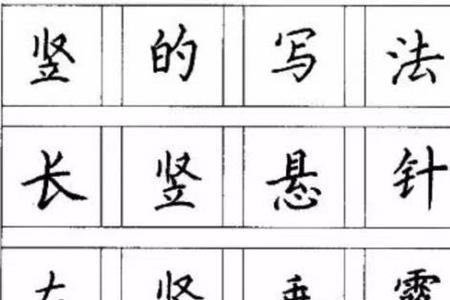 竖的写法
长竖悬针